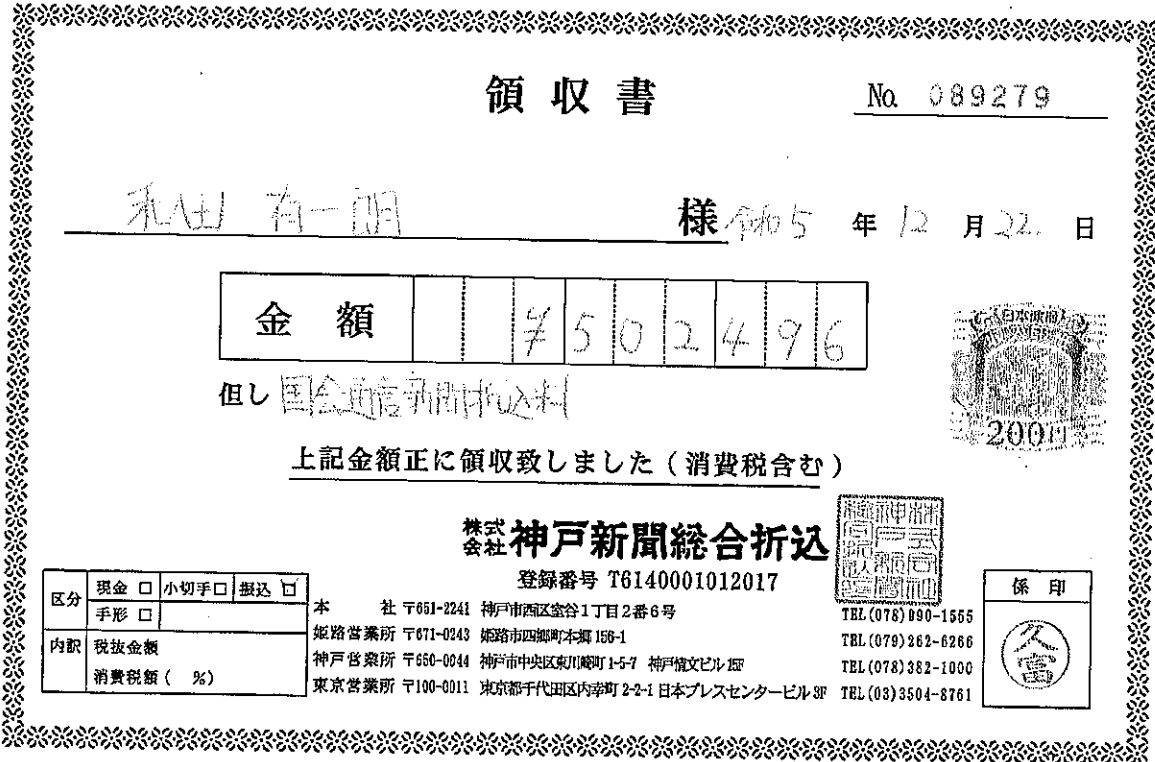 領収書
No. 089279
和田 有一朗 様 令和5年12月22日
金額 ¥502496
但し 国会通信新聞折込料
日本政府
200円
上記金額正に領収致しました(消費税含む)
株式会社 神戸新聞総合折込
登録番号 T6140001012017
区分 現金 □ 小切手 □ 振込 □
手形 □
内訳 税抜金額
消費税額( %)
本社 〒651-2241 神戸市西区室谷1丁目2番6号 TEL(078)990-1555
姫路営業所 〒671-0243 姫路市四郷町本郷156-1 TEL(079)262-6266
神戸営業所 〒650-0044 神戸市中央区東川崎町1-5-7 神戸情文ビル15F TEL(078)382-1000
東京営業所 〒100-0011 東京都千代田区内幸町2-2-1 日本プレスセンタービル3F TEL(03)3504-8761
係印
久富